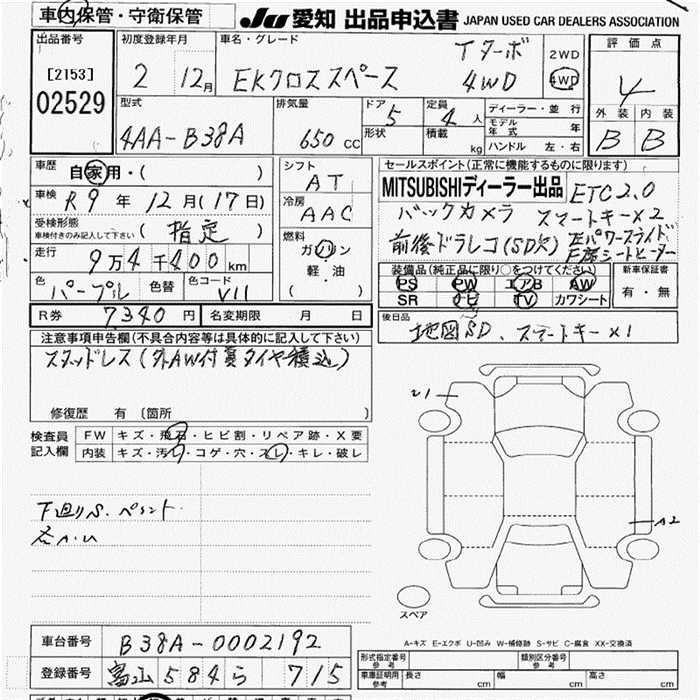 車内保管・守衛保管
JU 愛知 出品申込書 JAPAN USED CAR DEALERS ASSOCIATION
出品番号
[2153]
02529
初度登録年月
2 12月
車名・グレード
Tターボ
EKクロススペース 4WD
2WD
4WD
評価点
4
外装 内装
B B
型式
4AA-B38A
排気量
650 CC
ドア
5
形状
定員
4人
積載 kg
ディーラー・並行
モデル年式 年
ハンドル 左・右
車歴
自家用・( )
車検
R9年 12月(17日)
受検形態
車検付きのみ記入して下さい
(指定)
走行
9万4千400km
色
パープル
色替
色コード
V11
シフト
AT
冷房
AAC
燃料
ガソリン
軽・油
( )
セールスポイント(正常に機能するものに限ります)
MITSUBISHIディーラー出品 ETC2.0
バックカメラ スマートキー×2
前後ドラレコ(SD欠) 左パワースライド
装備品(純正品に限り○をつけてください)
PS PW エアB AW
SR ナビ TV カワシート
新車保証書
有・無
R券 7340円
名変期限 月 日
後日品
地図SD、スマートキー×1
注意事項申告欄(不具合内容等は具体的に記入して下さい)
スタッドレス(外AW付夏タイヤ積込)
修復歴 有 〔箇所 〕
検査員記入欄
FW キズ・飛石・ヒビ割・リペア跡・X要
内装 キズ・汚レ・コゲ・穴・スレ・キレ・破レ
下廻りS.ペイント
各A.U
A2
スペア
A-キズ E-エクボ U-凹み W-補修跡 S-サビ C-腐食 XX-交換済
車台番号 B38A-0002192
登録番号 富山 584 ら 715
形式指定番号 参考
類別区分番号 参考
車庫証明用 参考
長さ cm
幅 cm
高さ cm